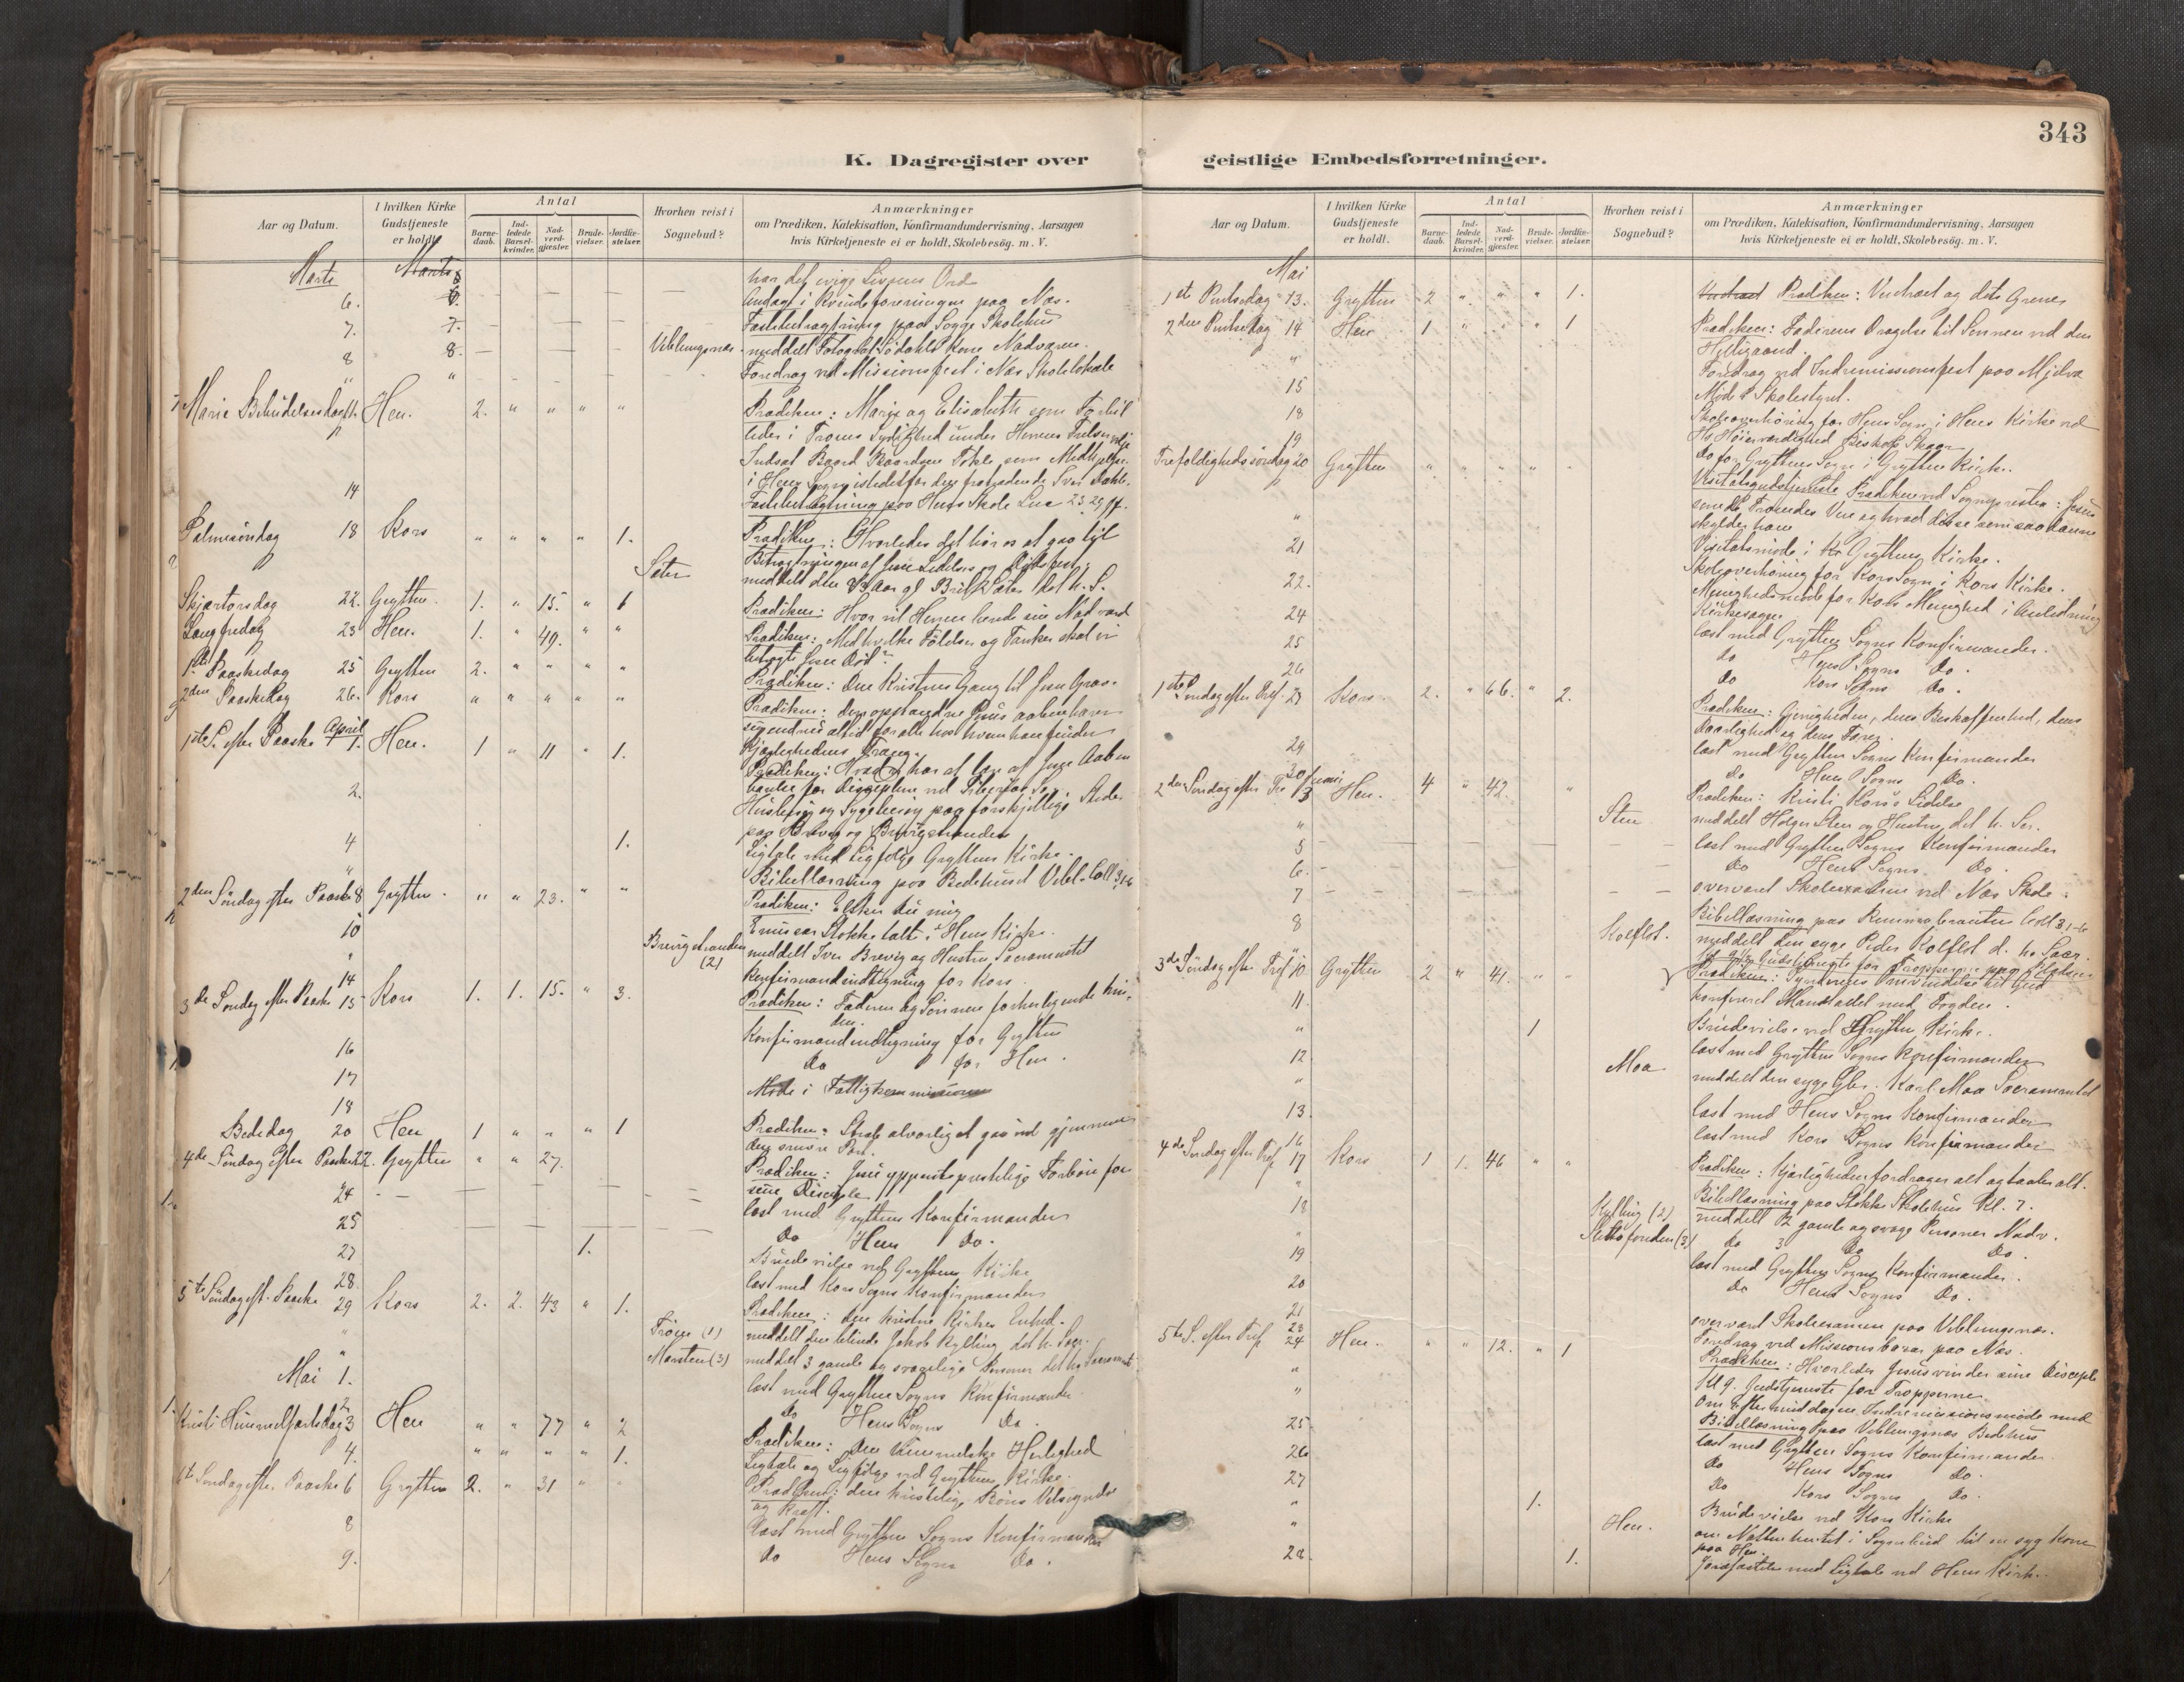 343
K. Dagregister over
geistlige Embedsforretninger.
Aar og Datum.
I hvilken Kirke Gudstjeneste er holdt.
Antal
Barne-daab.
Ind-ledede Barsel-kvinder.
Nad-verd-gjæster.
Brude-vielser.
Jordfæ-stelser
Hvorhen reist i Sognebud?
Anmærkninger
om Prædiken, Katekisation, Konfirmandundervisning, Aarsagen
hvis Kirketjeneste ei er holdt, Skolebesög. m. V.
Marts
har det evige Livsens Ord
6. Andagt i Kvindeforeningen paa Næs.
7. Fastebetragtning paa Sogge Skolehus
8 Veblungsnæs. meddelt Kone Nadveren.
" Foredrag ved Missionsfest i Næs Skolelokale
Mariæ Bebudelsesdag 11. Hen. 2. " " " " Prædiken: Maria og Elisabeth som
i Troens Lydighed under Herrens
Indsat Baard som Medhjelper
i Hens Sogn istedetfor den fratrædende Iver Dahle.
14 Fastebetragtning paa Hens Skole Luc 23.
Palmesöndag 18 Kors " " " " 1. Prædiken: Hvorledes det bör os at gaa til
Betragtningen af Jesu Lidelses og Dödsfest.
Sæter meddelt den Aar gl Brit Sæter det h. S.
Skjærtorsdag 22. Grytten. 1. " 15. " 1 Prædiken: Hvor vil Herren berede sin Nadverd
Langfredag 23 Hen. 1. " 49. " " Prædiken: Med hvilke Fölelser og Tanker skal vi
betragte Jesu Död?
1ste Paaskedag 25 Grytten 2. " " " " Prædiken: Den Kristnes Gang til Jesu Grav.
2den Paaskedag 26. Kors " " " " " Prædiken: Den opstandne Jesus aabenbarer
sig endnu altid for alle hos hvem han finder
Kjærlighedens Trang.
1ste S. efter Paaske April 1. Hen. 1 " 11 " 1. Prædiken: Hvad vi har at lære af Jesu Aaben
barelse for Disciplene ved Tiberias Sö.
2. Husbesög og Sygebesög paa forskjellige Steder
paa Brevig og Brevigstranden
4 1. Ligtale med Ligfölge Gryttens Kirke.
" Bibellæsning paa Bedehuset Vebl. Coll 3,1-6
2den Söndag efter Paaske 8 Grytten. " " 23. " " Prædiken: Elsker du mig
10 Emissær Stokke talt i Hens Kirke.
" Brevigstranden (2) meddelt Iver Brevig og Hustru Sacramentet
14 Konfirmandindtegning for Kors.
3de Söndag efter Paaske 15 Kors 1. 1. 15. " 3. Prædiken: Faderen og Sönnen forherligende hin-
den.
16 Konfirmandindtegning for Grytten
17 Do for Hen.
18 Möde i Fattigkommissionen
Bededag 20 Hen 1 " " " 1 Prædiken: Stræb alvorlig at gaa ind gjennem
den snevre Port.
4de Söndag efter Paaske 22. Grytten " " 27. Prædiken: Jesu ypperstepræstelige Forbön for
sine Disciple
24 læst med Gryttens Konfirmander
25 Do Hens Do.
27 1. Brudevielse ved Gryttens Kirke
28. læst med Kors Sogns Konfirmander
5te Söndag eft. Paaske 29 Kors 2. 2. 43 " 1. Prædiken: den kristne Kirkes Enhed.
" Tröen (1) meddelt den blinde Jakob Kylling det h. Sacr.
" Marsten (3) meddelt 3 gamle og svagelige Personer det h. Sacrament
Mai 1. læst med Grytten Sogns Konfirmander.
2 Do Hens Sogns Do.
Kristi Himmelfartsdag 3 Hen " " 77 " 2 Prædiken: Den himmelske Herlighed
4. " " " " 1. Ligtale og Ligfölge ved Gryttens Kirke.
6te Söndag efter Paaske 6 Grytten 2. " 31 " Prædiken: den kristelige Böns Velsignelse
og Kraft.
8 læst med Grytten Sogns Konfirmander
9. Do Hens Sogns Do.
Aar og Datum.
I hvilken Kirke Gudstjeneste er holdt.
Antal
Barne-daab.
Ind-ledede Barsel-kvinder.
Nad-verd-gjæster.
Brude-vielser.
Jordfæ-stelser
Hvorhen reist i Sognebud?
Anmærkninger
om Prædiken, Katekisation, Konfirmandundervisning, Aarsagen
hvis Kirketjeneste ei er holdt, Skolebesög. m. V.
Mai
1ste Pintsedag 13. Grytten 2 " " " 1. Prædiken: Vintræet og dets Grene
2den Pintsedag 14 Hen 1 " " " 1 Prædiken: Faderens Dragelse til Sönnen ved den
Helligaand.
" Foredrag ved Indremissionsfest paa Mjelva
15 Möde i Skolestyret.
18 Skoleoverhöring for Hens Sogn i Hens Kirke ved
Hs Höiærværdighed Biskop Skaar
19 Do for Gryttens Sogn i Grytten Kirke.
Trefoldighedssöndag 20 Grytten " " " " " Visitatsgudstjeneste Prædiken ved Sognepresten: Jesus
sande Troendes Ven og hvad disse som saadanne
skylder ham
" Visitatsmöde i Gryttens Kirke.
21 Skoleoverhöring for Kors Sogn i Kors Kirke.
22. Menighedsmöde for Kors Menighed i Anledning
Kirkesagen
24 læst med Grytten Sogns Konfirmander.
25 Do Hens Sogns Do.
26 Do Kors Sogns Do.
1ste Söndag efter Tref. 27 Kors. 2. " 66. " 2. Prædiken: Gjerrigheden, dens Beskaffenhed, dens
Daarlighed og dens Farer.
29 læst med Grytten Sogns Konfirmander
30 Do Hens Sogns Do.
2den Söndag efter Tre Juni 3 Hen. 4 " 42. " Prædiken: Kristi Kors's Lidelse
" Sten meddelt Holger Sten og Hustru det h. Sac.
5 læst med Grytten Sogns Konfirmander
6. Do Hens Sogns Do.
7 overværet Skoleexamen ved Næs Skole.
8 Bibellæsning paa Coll 3,1-6
" Kolflot. meddelt den syge Peder Kolflot d. h. Sacr.
for Tropperne paa
3de Söndag efter Tref 10 Grytten 2 " 41. " " Prædiken: Synderens Omvendelse til Gud
11. konfereret Mandtallet med Fogden.
" 1 Brudevielse ved Grytten Kirke.
12 læst med Gryttens Sogns Konfirmander
" Moa meddelt den syge Gbr. Karl Moa Sacramentet
13. læst med Hens Sogns Konfirmander
16 læst med Kors Sogns Konfirmander
4de Söndag efter Tref 17 Kors 1 1. 46 " " Prædiken: Kjærligheden fordrager alt og taaler alt.
" Bibellæsning paa Stokke Skolehus Kl. 7.
18 Kylling (2) meddelt 2 gamle og svage Personer Nadv.
" (3) Do 3 Do Do.
19 læst med Gryttens Sogns Konfirmander.
20 Do Hens Sogns Do.
21 overværet Skoleexamen paa Veblungsnæs.
23 Foredrag ved Missionsbazar paa Næs.
5te S. efter Tref 24 Hen. " " 12. " 1 Prædiken: Hvorledes Jesus vinder sine Disciple
" Kl 9. Gudstjeneste for Tropperne
" Om Eftermiddagen Indremissionsmöde med
Bibellæsning paa Veblungsnæs Bedehus
25. læst med Grytten Sogns Konfirmander.
26 Do Hens Sogns Do.
27 Do Kors Sogns Do.
" 1. Brudevielse ved Kors Kirke
" Hen. om Natten hentet i Sognebud til en syg Kone
paa Hen.
28. 1. Jordfæstelse med Ligtale ved Hens Kirke.